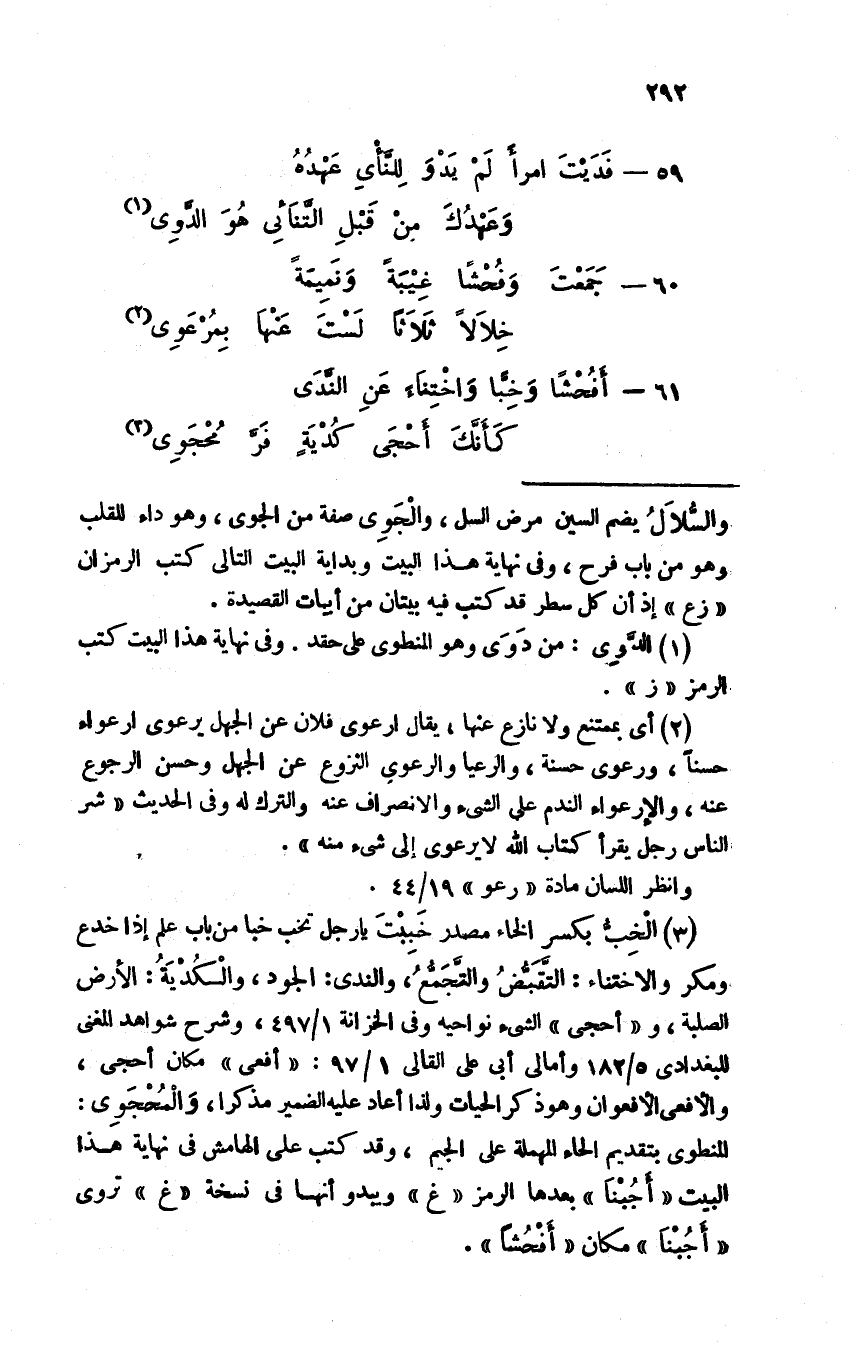 ٢٩٢
٥٩ — فَدَيْتَ امرأً لَمْ يَدْوَ لِلنَّأْيِ عَهْدُهُ
وَعَهْدُكَ مِنْ قَبْلِ التَّنَائِي هُوَ الدَّوِى(١)
٦٠ — جَمَعْتَ وَفُحْشًا غِيْبَةً وَنَمِيمَةً
خِلاَلاً ثَلاَثاً لَسْتَ عَنْهَا بِمُرْعَوِى(٢)
٦١ — أَفُحْشًا وَخِبًّا وَاخْتِنَاء عَنِ النَّدَى
كَأَنَّكَ أَحْجَى كُدْيَةٍ فَرَّ مُحْجَوِى(٣)
والسُّلاَلُ يضم السين مرض السل ، والْجَوِى صفة من الجوى ، وهو داء للقلب
وهو من باب فرح ، وفى نهاية هـذا البيت وبداية البيت التالى كتب الرمزان
« زع » إذ أن كل سطر قد كتب فيه بيتان من أبيات القصيدة .
(١) الدَّوِى : من دَوَى وهو المنطوى على حقد . وفى نهاية هذا البيت كتب
الرمز « ز » .
(٢) أى بممتنع ولا نازع عنها ، يقال ارعوى فلان عن الجهل يرعوى ارعواء
حسناً ، ورعوى حسنة ، والرعيا والرعوى النزوع عن الجهل وحسن الرجوع
عنه ، والإرعواء الندم على الشىء والانصراف عنه والترك له وفى الحديث « شر
الناس رجل يقرأ كتاب الله لا يرعوى إلى شىء منه » .
وانظر اللسان مادة « رعو » ٤٤/١٩ .
(٣) الْخِبُّ بكسر الخاء مصدر خَبِبْتَ يارجل تخب خبا من باب علم إذا خدع
ومكر والاختناء : التَّقَبُّضُ والتَّجَمُّعُ ، والندى: الجود ، والْكُدْيَةُ : الأرض
الصلبة ، و « أحجى » الشىء نواحيه وفى الخزانة ٤٩٧/١ ، وشرح شواهد المغنى
للبغدادى ١٨٢/٥ وأمالى أبى على القالى ٩٧/١ : « أفعى » مكان أحجى ،
والأفعى الأفعوان وهو ذكر الحيات ولذا أعاد عليه الضمير مذكرا ، وَالْمُحْجَوِى :
المنطوى بتقديم الحاء المهملة على الجيم ، وقد كتب على الهامش فى نهاية هـذا
البيت « أَجُبْنَا » بعدها الرمز « غ » ويبدو أنهـا فى نسخة « غ » تروى
« أَجُبْنَا » مكان « أَفُحْشاً » .